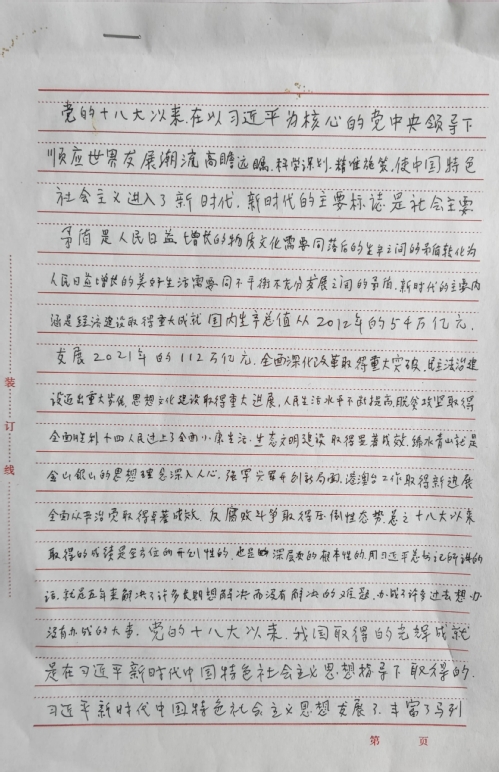 党的十八大以来.在以习近平为核心的党中央领导下
顺应世界发展潮流高瞻远瞩.科学谋划.精准施策.使中国特色
社会主义进入了新时代.新时代的主要标志是社会主要
矛盾是人民日益增长的物质文化需要同落后的生产之间的矛盾转化为
人民日益增长的美好生活需要同不平衡不充分发展之间的矛盾.新时代的主要内
涵是经济建设取得重大成就国内生产总值从2012年的54万亿元.
发展2021年的112万亿元.全面深化改革取得重大突破.民主法治建
设迈出重大步伐.思想文化建设取得重大进展.人民生活水平不断提高.脱贫攻坚取得
全面胜利十四人民过上了全面小康生活.生态文明建设取得显著成效.绿水青山就是
金山银山的思想理念深入人心.强军兴军开创新局面.港澳台工作取得新进展
全面从严治党取得卓著成效.反腐败斗争取得压倒性态势总之十八大以来
取得的成绩是全方位的开创性的.也是深层次的根本性的.用习近平总书记所讲的
话.就是五年来解决了许多长期想解决而没有解决的难题.办成了许多过去想办
没有办成的大事.党的十八大以来.我国取得的光辉成就
是在习近平新时代中国特色社会主义思想指导下取得的.
习近平新时代中国特色社会主义思想发展了.丰富了马列
装订线
第 页